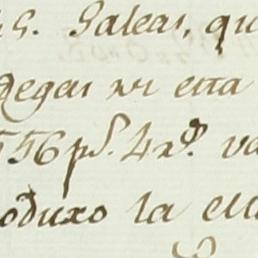 G. Galeas, qu
degas ni esta
556 ps. 4 rs. va
oduxo la ella